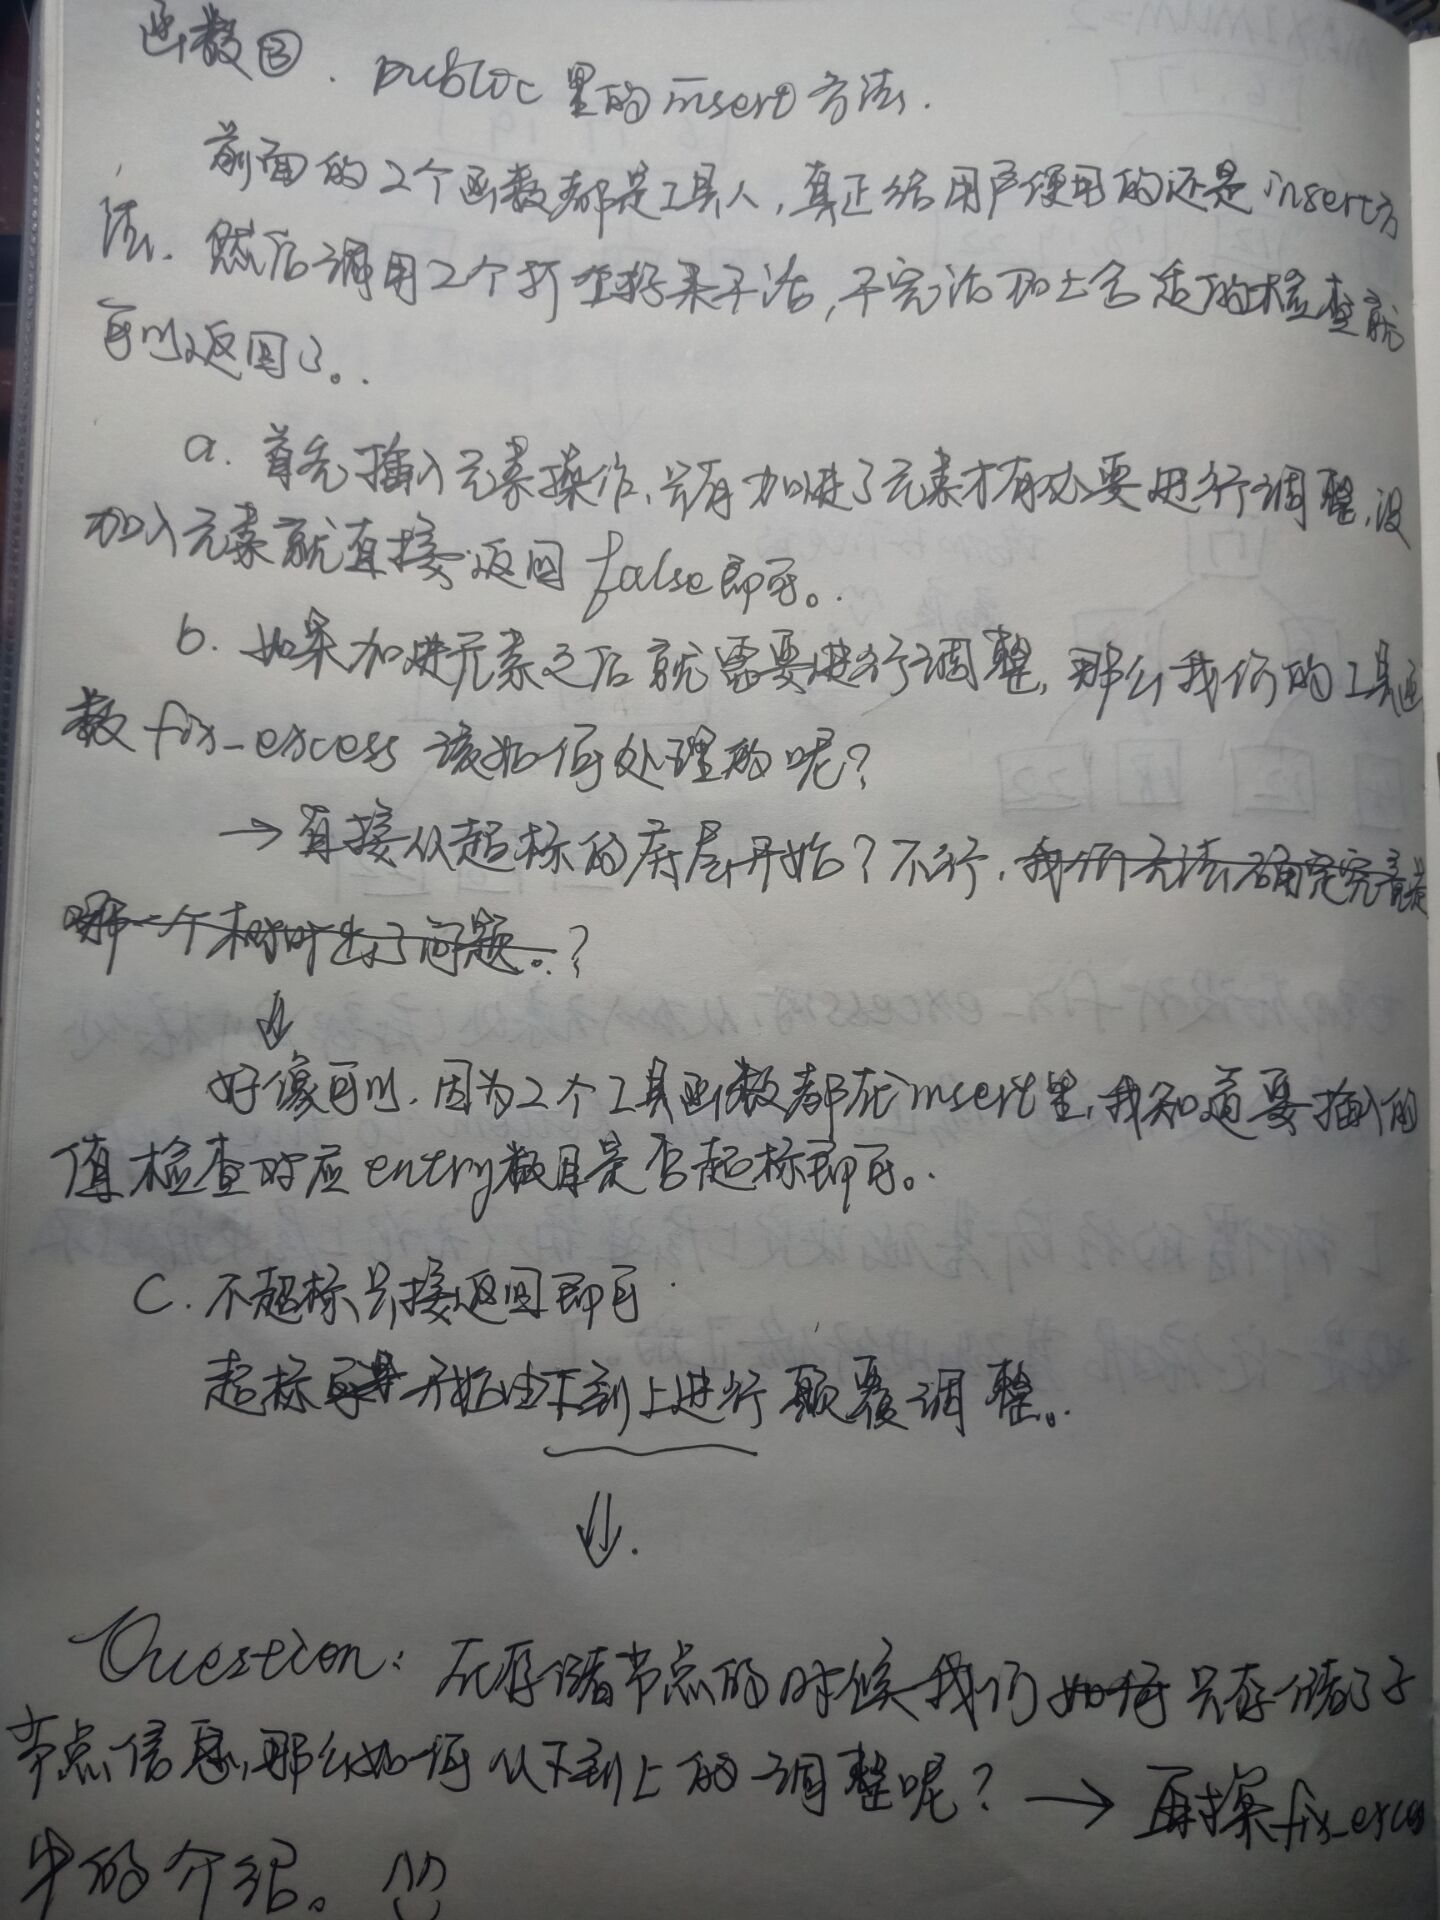 函数③. public里的insert方法.
前面的2个函数都是工具人,真正给用户使用的还是insert方
法.然后调用2个打工籽来干活,干完活加上合适的检查就
可以返回了。
a.首先插入元素操作,只有加进了元素才有必要进行调整,没
加入元素就直接返回false即可。
b.如果加进元素之后就需要进行调整,那么我们的工具函
数fix_excess该如何处理的呢?
→直接从超标的底层开始?不行,我们无法确定究竟是
哪一个树叶出了问题。?
↓
好像可以.因为2个工具函数都在insert里,我知道要插入的
值检查对应entry数目是否超标即可。
C.不超标只接返回即可
超标开始由下到上进行颠覆调整。
⇓.
Question:在存储节点的时候我们如何只存储了子
节点信息,那么如何从下到上的调整呢?→再探fix_excess
中的介绍。